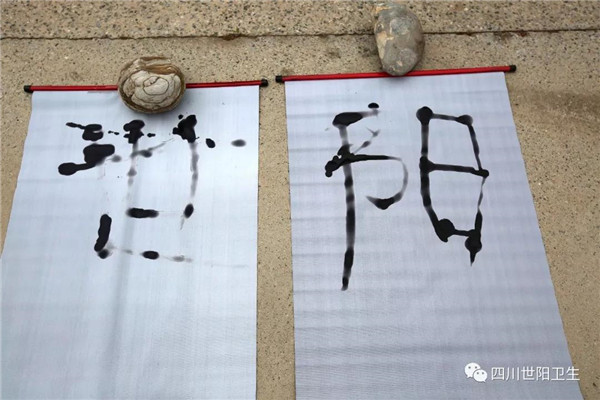 世
阳
四川世阳卫生